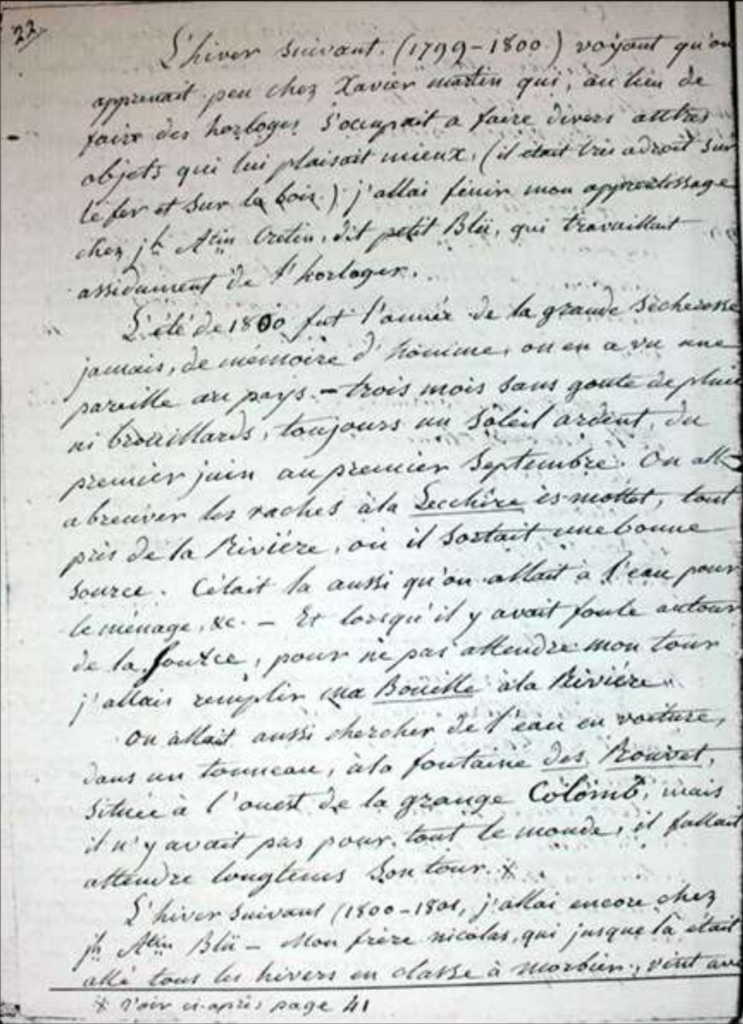 22/
L'hiver suivant. (1799-1800.) voyant qu'on
apprenait peu chez Xavier martin qui, au lieu de
faire des horloges s'occupait a faire divers autres
objets qui lui plaisait mieux, (il était très adroit sur
le fer et sur le bois.) j'allai finir mon apprentissage
chez jh Atin Cretin, dit petit Blü, qui travaillait
assidument de l'horloger.
L'été de 1800 fut l'année de la grande sècheresse
jamais, de mémoire d'homme, on en a vu une
pareille au pays. - trois mois sans goute de pluie
ni brouillards, toujours un soleil ardent, du
premier juin au premier septembre. On all
abreuver les vaches à la Secchire ès mottet, tout
près de la Rivière, où il sortait une bonne
source. C'était la aussi qu'on allait a l'eau pour
le ménage, &c. - Et lorsqu'il y avait foule autour
de la source, pour ne pas attendre mon tour
j'allais remplir ma Bouille à la Rivière.
On allait aussi chercher de l'eau en voiture,
dans un tonneau, à la fontaine des Rouvet,
située à l'ouest de la grange Colomb, mais
il n'y avait pas pour tout le monde, il fallait
attendre longtems son tour. *
L'hiver suivant (1800-1801, j'allai encore chez
jh Atin Blü - Mon frère nicolas, qui jusque là était
allé tous les hivers en classe à morbier, vint avec
* Voir ci-après page 41